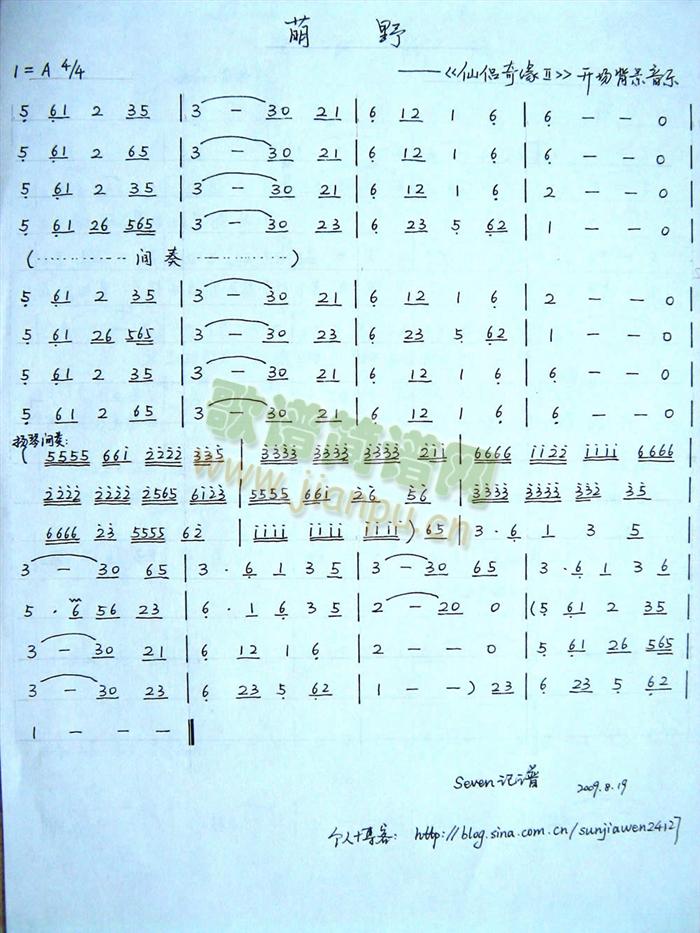 萌 野
1 = A 4/4 ——《仙侣奇缘Ⅱ》开场背景音乐
5 61 2 35 | 3 — 30 21 | 6 12 1 6 | 6 — — 0 |
5 61 2 65 | 3 — 30 21 | 6 12 1 6 | 6 — — 0 |
5 61 2 35 | 3 — 30 21 | 6 12 1 6 | 2 — — 0 |
5 61 26 565 | 3 — 30 23 | 6 23 5 62 | 1 — — 0 |
(············ 间奏 ············)
5 61 2 35 | 3 — 30 21 | 6 12 1 6 | 2 — — 0 |
5 61 26 565 | 3 — 30 23 | 6 23 5 62 | 1 — — 0 |
5 61 2 35 | 3 — 30 21 | 6 12 1 6 | 6 — — 0 |
5 61 2 65 | 3 — 30 21 | 6 12 1 6 | 6 — — 0 |
扬琴间奏:
(5555 661 2222 335 | 3333 3333 3333 211 | 6666 1122 1111 6666 |
2222 2222 2565 6123 | 5555 661 26 56 | 3333 3333 332 35 |
6666 23 5555 62 | 1111 1111 1111) 65 | 3 · 6 1 3 5 |
3 — 30 65 | 3 · 6 1 3 5 | 3 — 30 65 | 3 · 6 1 3 6 |
5 · 6 56 23 | 6 · 1 6 3 5 | 2 — 20 0 | (5 61 2 35 |
3 — 30 21 | 6 12 1 6 | 2 — — 0 | 5 61 26 565 |
3 — 30 23 | 6 23 5 62 | 1 — —) 23 | 6 23 5 62 |
1 — — — ‖
Seven记谱 2009.8.19
个人博客: http://blog.sina.com.cn/sunjiawen24127
歌谱简谱网
www.jianpu.cn